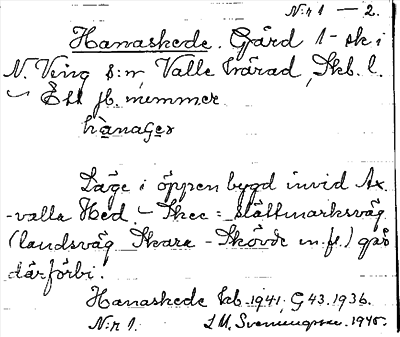 N:r 1 — 2.
Hanaskede. Gård 1 - sk i
N. Ving s:n, Valle härad, Skb. l.
Ett jb. nummer.
hànaGeɤ
Läge i öppen bygd invid Ax-
-valla Hed. - Skee = slättmarksväg
(landsväg Skara - Skövde m. fl.) går
därförbi.
Hanaskede Jeb. 1941; G 43. 1936.
N:r 1. 1945.